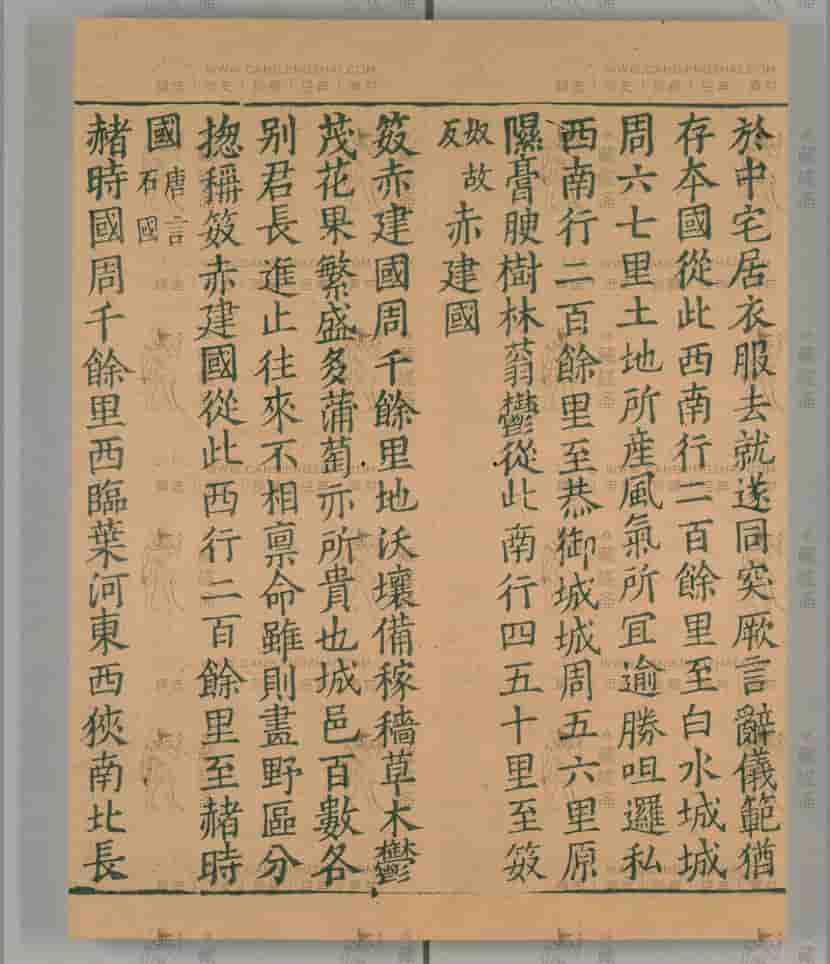 於中宅居衣服去就遂同突厥言辭儀範猶
存本國從此西南行二百餘里至白水城城
周六七里土地所產風氣所宜逾勝呾邏私
西南行二百餘里至恭御城城周五六里原
隰膏腴樹林蓊鬱從此南行四五十里至笯
奴故
反
赤建國
笯赤建國周千餘里地沃壤備稼穡草木鬱
茂花果繁盛多蒲萄亦所貴也城邑百數各
別君長進止往來不相稟命雖則畫野區分
揔稱笯赤建國從此西行二百餘里至赭時
國
唐言
石國
赭時國周千餘里西臨葉河東西狹南北長